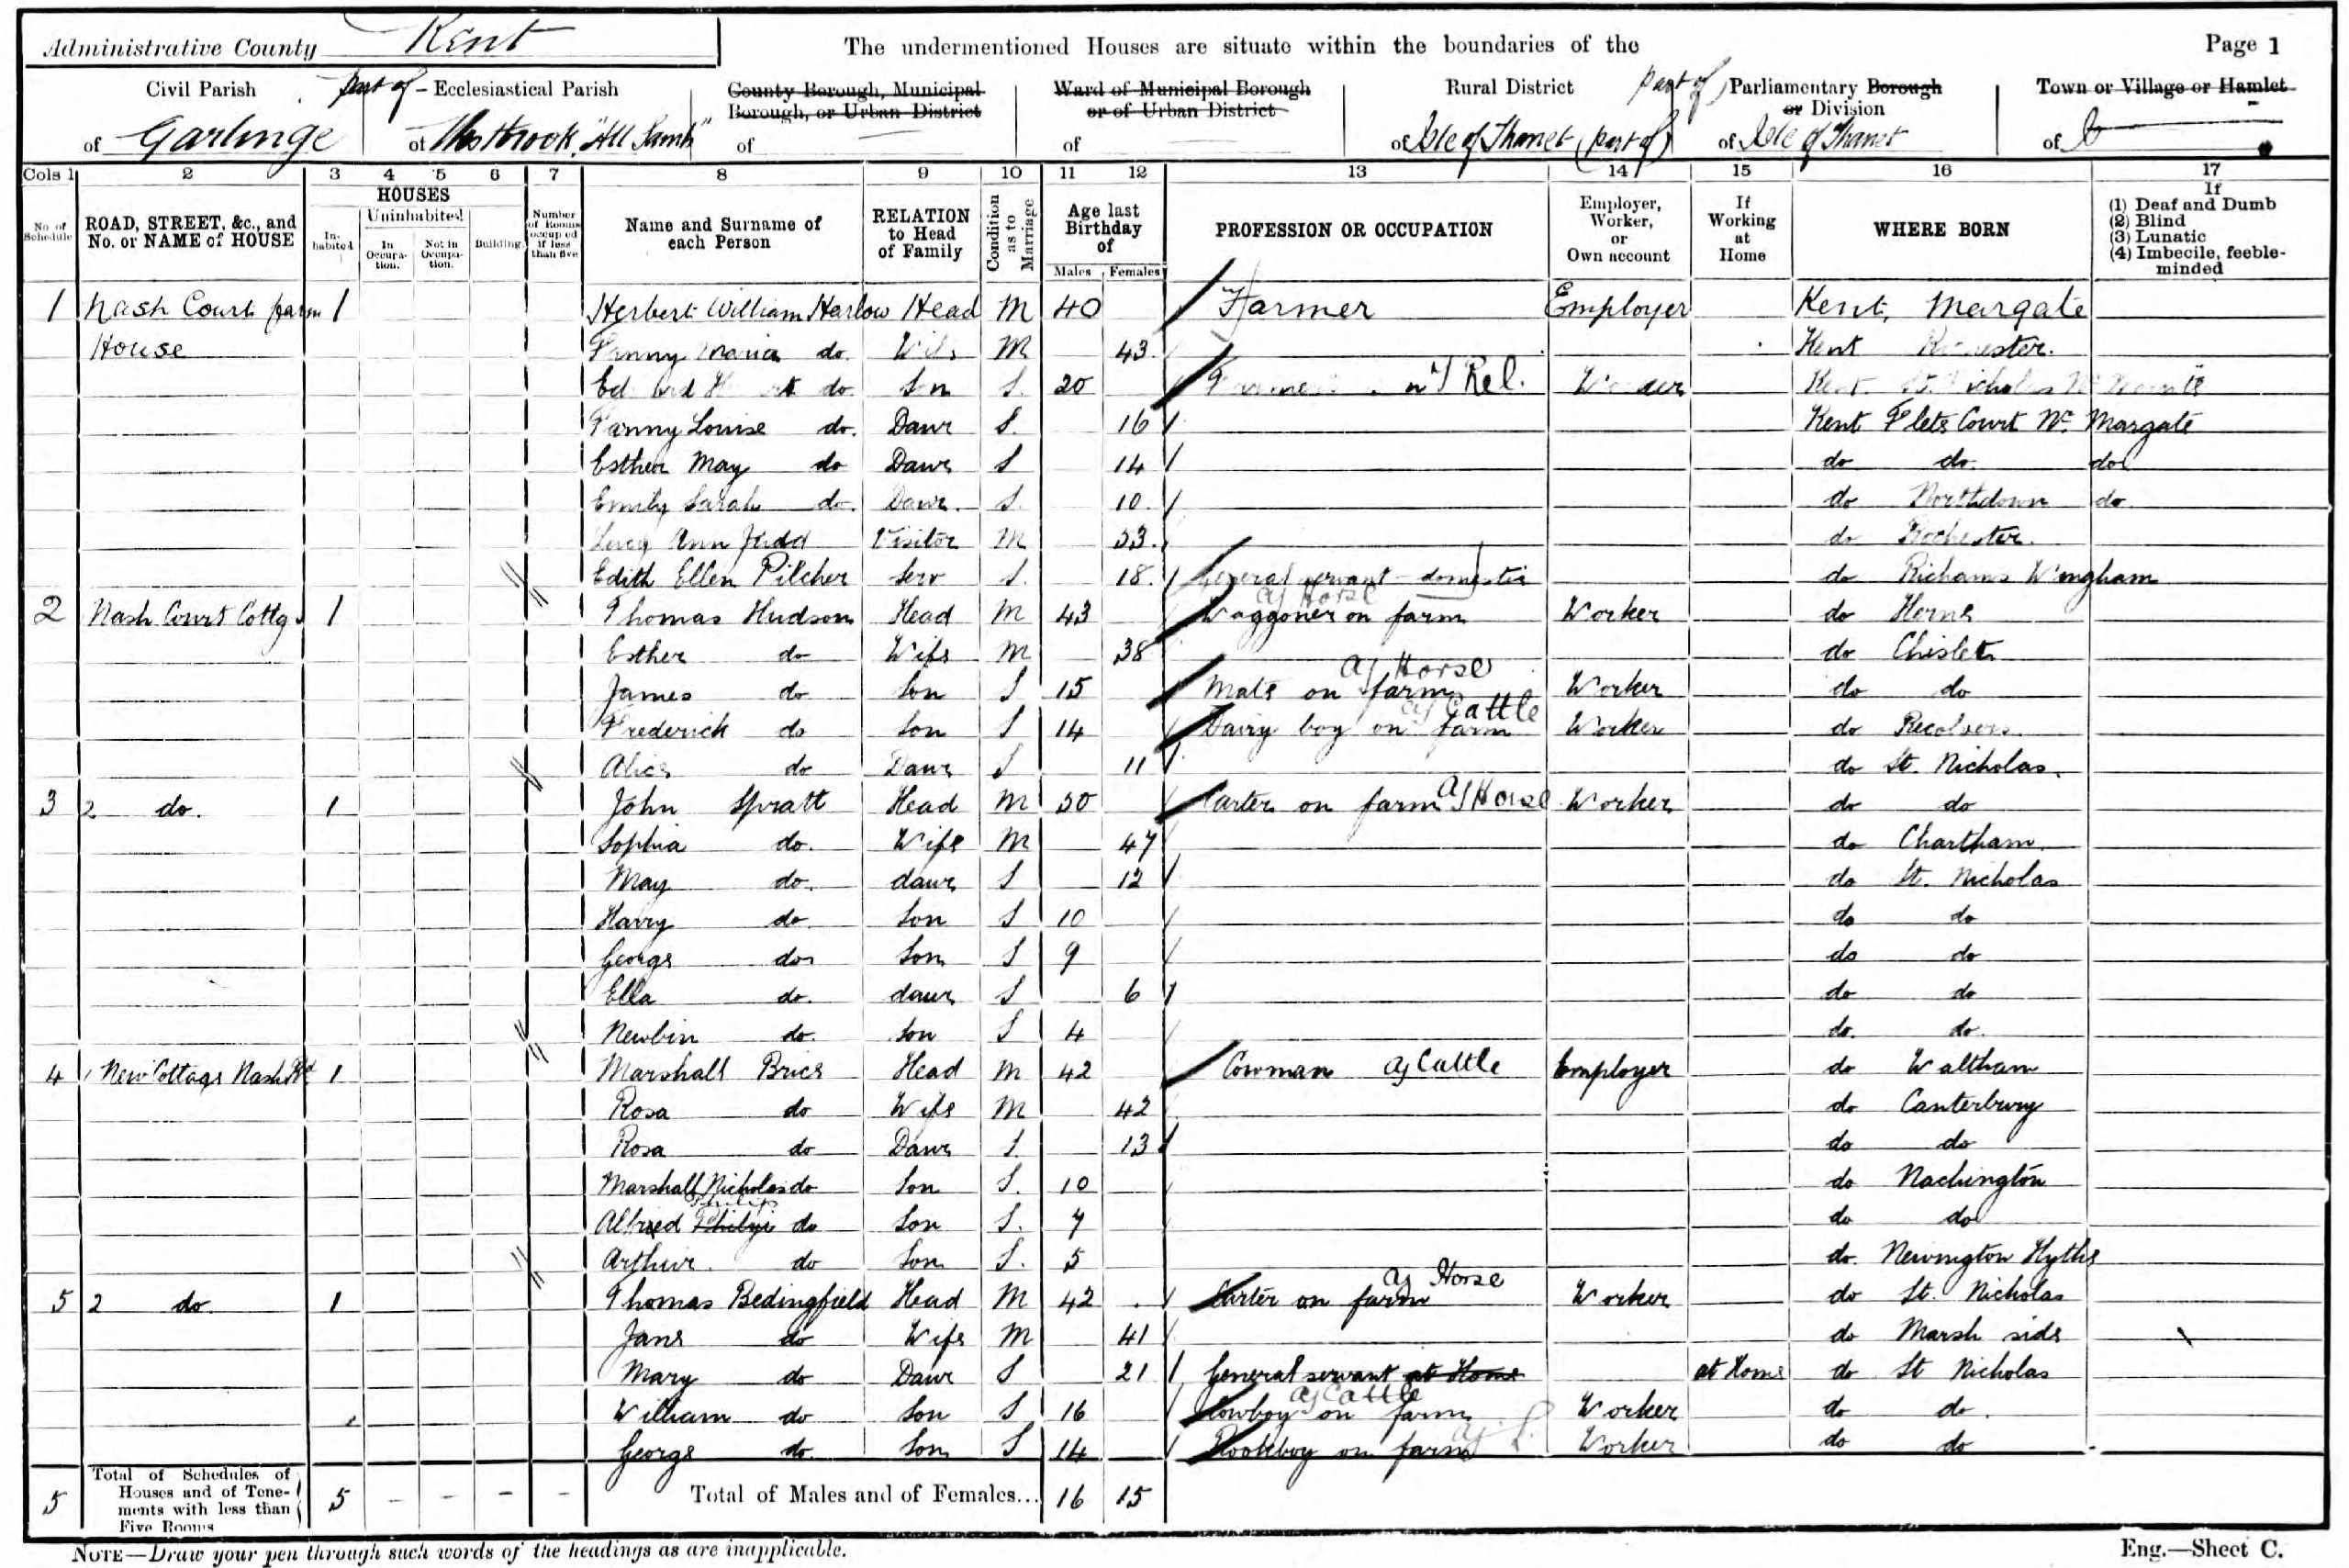 Administrative County Kent
The undermentioned Houses are situate within the boundaries of the
Page 1
Civil Parish
of Garlinge
part of Ecclesiastical Parish
of Westbrook "All Saints"
County Borough, Municipal Borough, or Urban District
of
Ward of Municipal Borough or of Urban District
of
Rural District
of Isle of Thanet (part of)
part of Parliamentary Borough or Division
of Isle of Thanet
Town or Village or Hamlet
of
Cols 1 2 3 4 5 6 7 8 9 10 11 12 13 14 15 16 17
No. of Schedule
ROAD, STREET, &c., and No. or NAME of HOUSE
HOUSES
Inhabited
Uninhabited
In Occupation.
Not in Occupation.
Building.
Number of Rooms occupied if less than five
Name and Surname of each Person
RELATION to Head of Family
Condition as to Marriage
Age last Birthday of
Males Females
PROFESSION OR OCCUPATION
Employer, Worker, or Own account
If Working at Home
WHERE BORN
If
(1) Deaf and Dumb
(2) Blind
(3) Lunatic
(4) Imbecile, feeble-minded
1 Nash Court farm 1 Herbert William Harlow Head M 40 Farmer Employer Kent, Margate
House Fanny Maria do Wife M 43 Kent Rochester.
Edward do Son S. 20 Rel. Worker Kent. St. Nicholas
Fanny Louise do. Daur S. 16 Kent Flete Court Nr. Margate
Esther May do Daur S 14 do do. do
Emily Sarah do. Daur. S. 10. do Northdown do.
Lucy Ann Judd Visitor M 53. do Rochester.
Edith Ellen Pilcher Serv S. 18. General servant - domestic do Wingham
2 Nash Court Cottgs 1 Thomas Hudson Head M 43 Waggoner on farm ag Horse Worker do Herne
Esther do Wife M 38 do Chislet
James do Son S 15 Mate on farm ag Horse Worker do do
Frederick do Son S 14 Dairy boy on farm ag Cattle Worker do Reculvers
Alice do Daur S 11 do St. Nicholas.
3 2 do. 1 John Spratt Head M 50 Carter on farm ag Horse Worker do do
Sophia do. Wife M 47 do Chartham.
May do. daur S 12 do St. Nicholas
Harry do. Son S 10 do do
George do Son S 9 do do
Ella do. daur S 6 do do
Newbin do. Son S 4 do. do.
4 1 New Cottage Nash Rd 1 Marshall Brice Head M 42 Cowman ag Cattle Employer do Waltham
Rosa do Wife M 42 do Canterbury
Rosa do Daur S 13 do do
Marshall Nicholas do Son S. 10 do Nackington
Alfred Philip do Son S. 7 do do
Arthur. do Son S. 5 do. Newington Hythe
5 2 do. 1 Thomas Bedingfield Head M 42 Carter on farm ag Horse Worker do St. Nicholas
Jane do Wife M 41 do Marsh side
Mary do Daur S 21 General servant at Home at Home do St Nicholas
William do Son S 16 Cowboy on farm ag Cattle Worker do do.
George do. Son S 14 Rookboy on farm Worker do do
5 Total of Schedules of Houses and of Tenements with less than Five Rooms 5 - - - - Total of Males and of Females... 16 15
NOTE—Draw your pen through such words of the headings as are inapplicable.
Eng.—Sheet C.